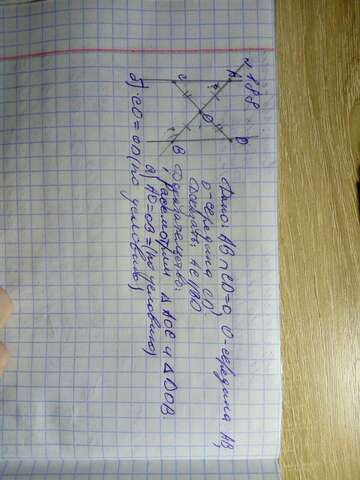 №188
A
C
O
D
B
Дано: AB ∩ CD = O, O - середина AB,
O - середина CD,
Доказать: AC || BD
Доказательство:
1) Рассмотрим △ AOC и △ DOB.
а) AO = OB = (по условию)
б) CO = OD (по условию)